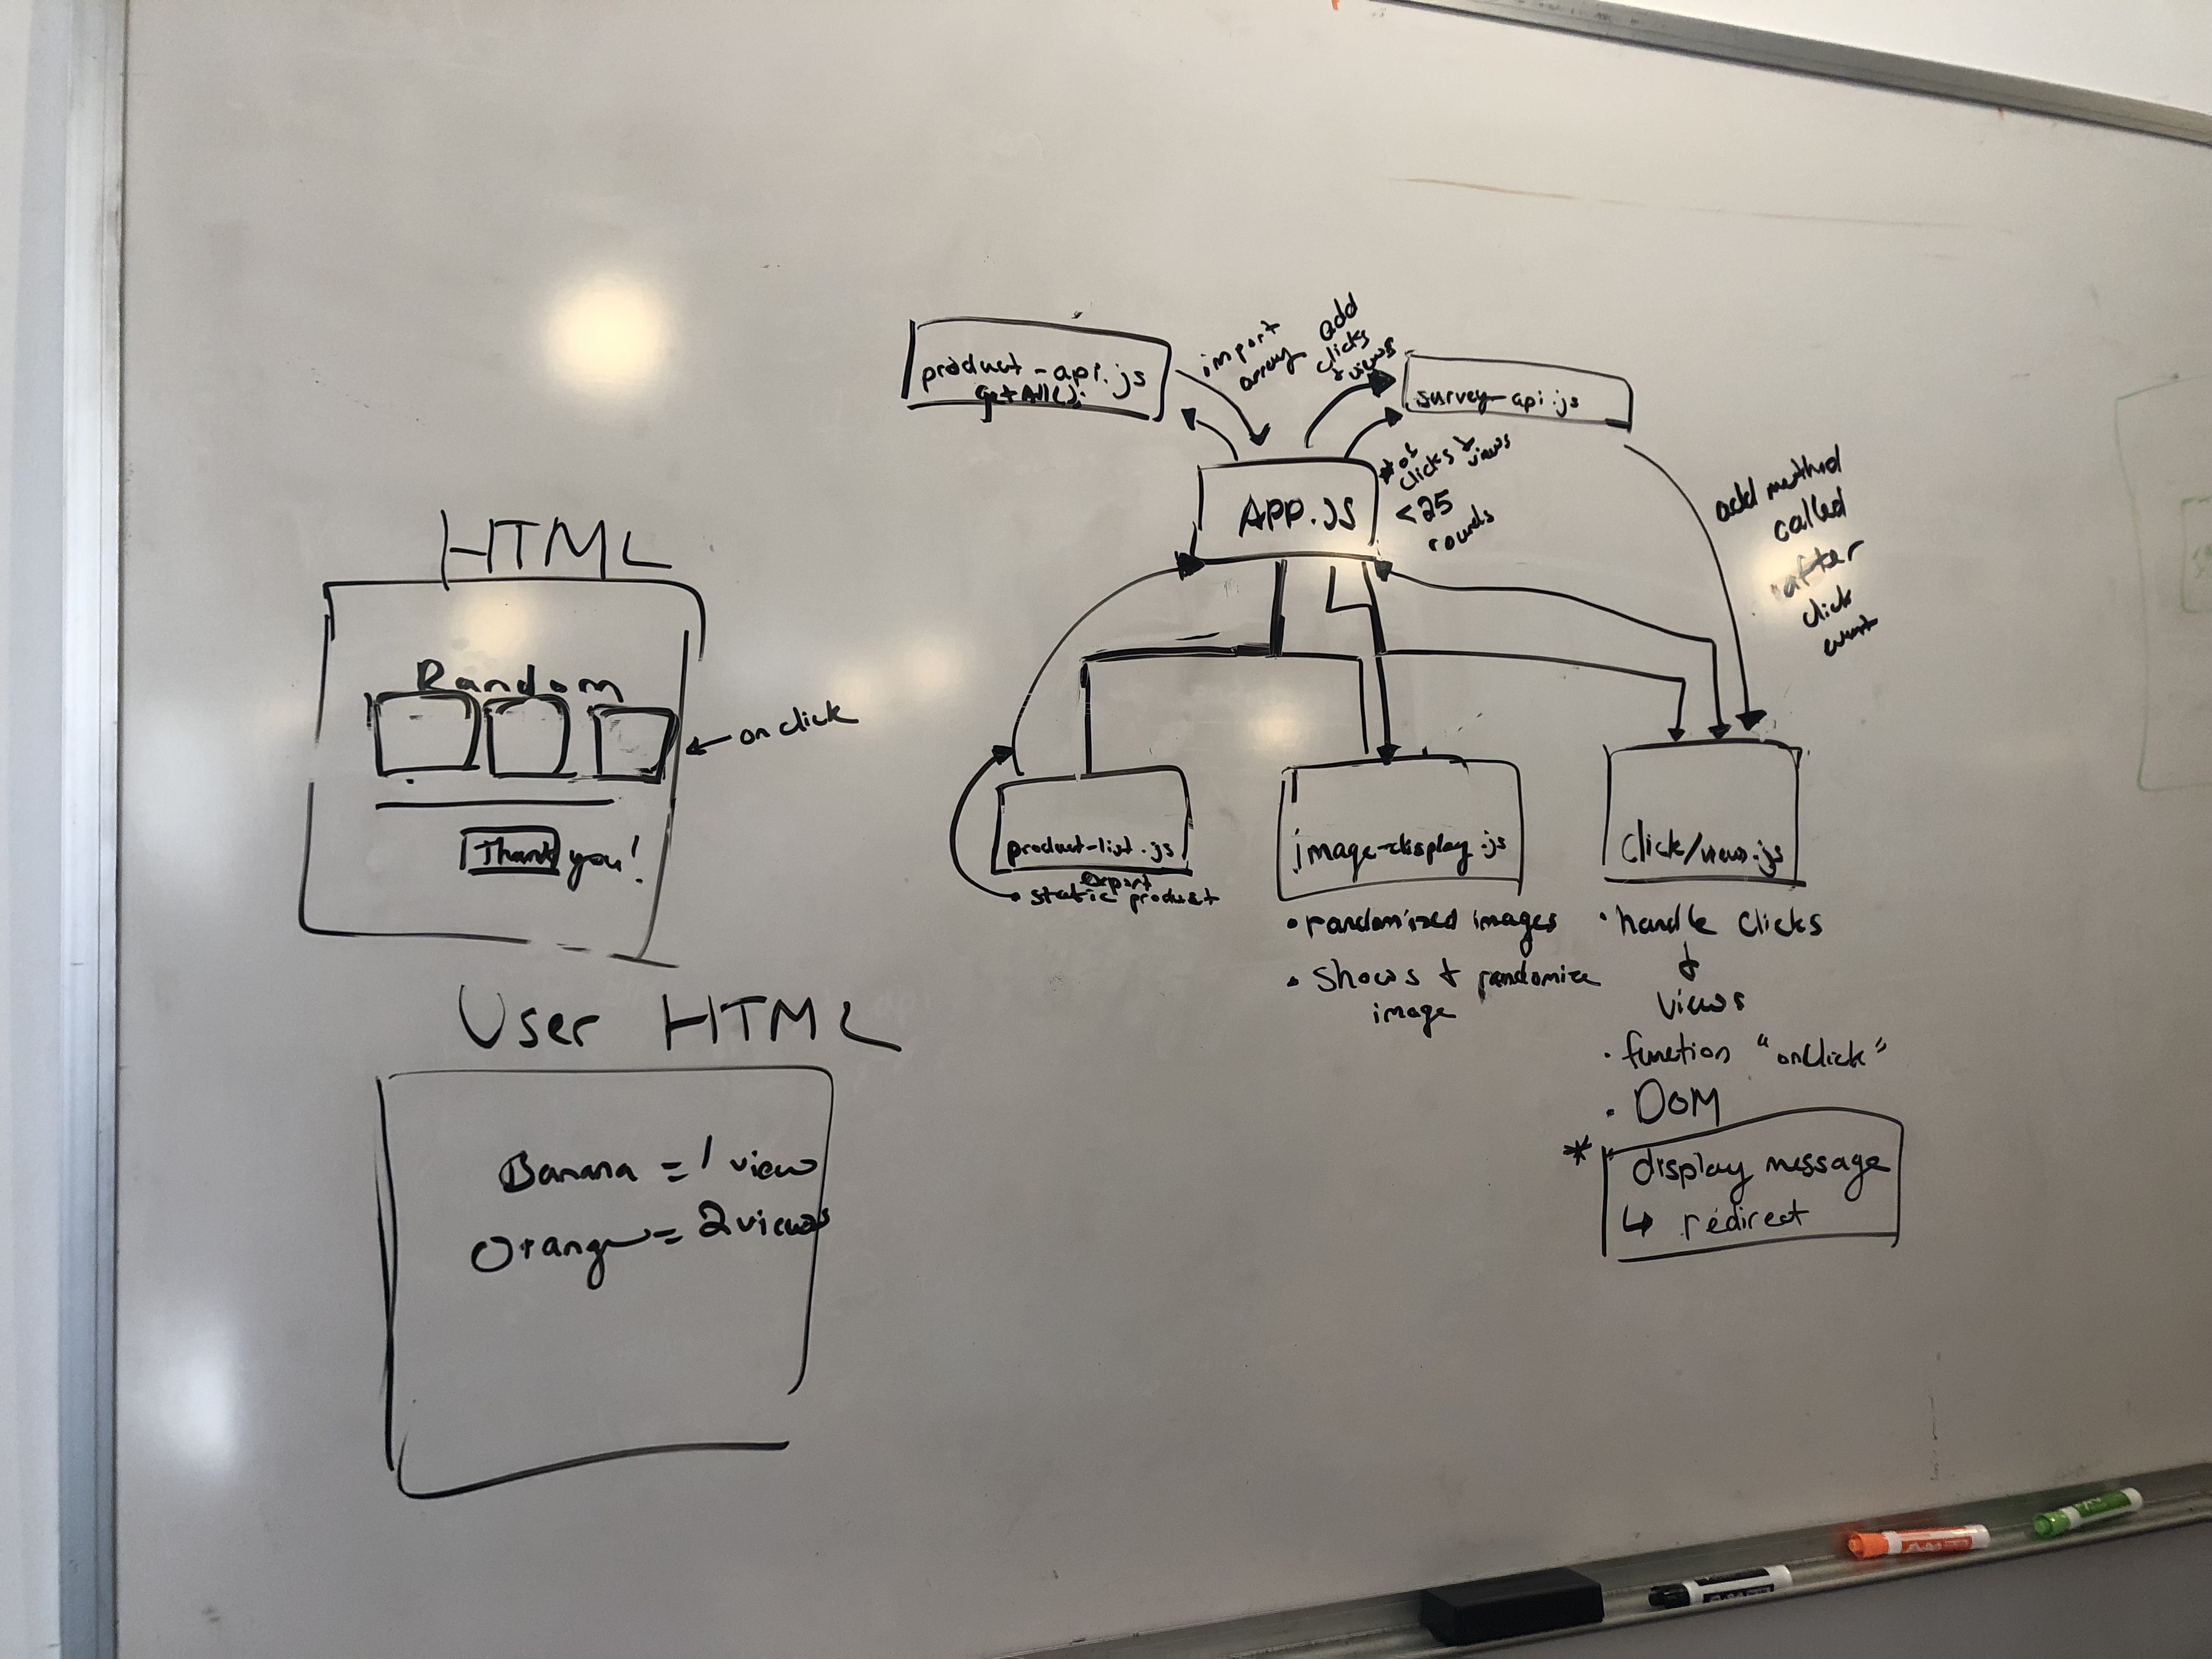 HTML
Random
← on click
Thank you!
User HTML
Banana = 1 view
Orange = 2 views
product-api.js
getAll();
import
array
add
clicks
+ views
survey-api.js
APP.JS
# of
clicks + views
<25
rounds
add method
called
after
click
event
product-list.js
export
• static product
image-display.js
• randomized images
• shows + randomize
image
click/view.js
• handle clicks
+
views
• function "onClick"
• DOM
* display message
↳ redirect